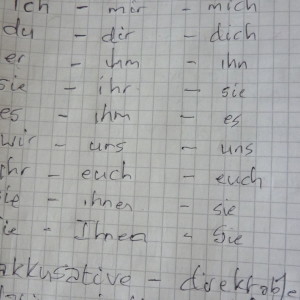 ich - mir - mich
du - dir - dich
er - ihm - ihn
sie - ihr - sie
es - ihm - es
wir - uns - uns
ihr - euch - euch
sie - ihnen - sie
Sie - Ihnen - Sie
akkusative -